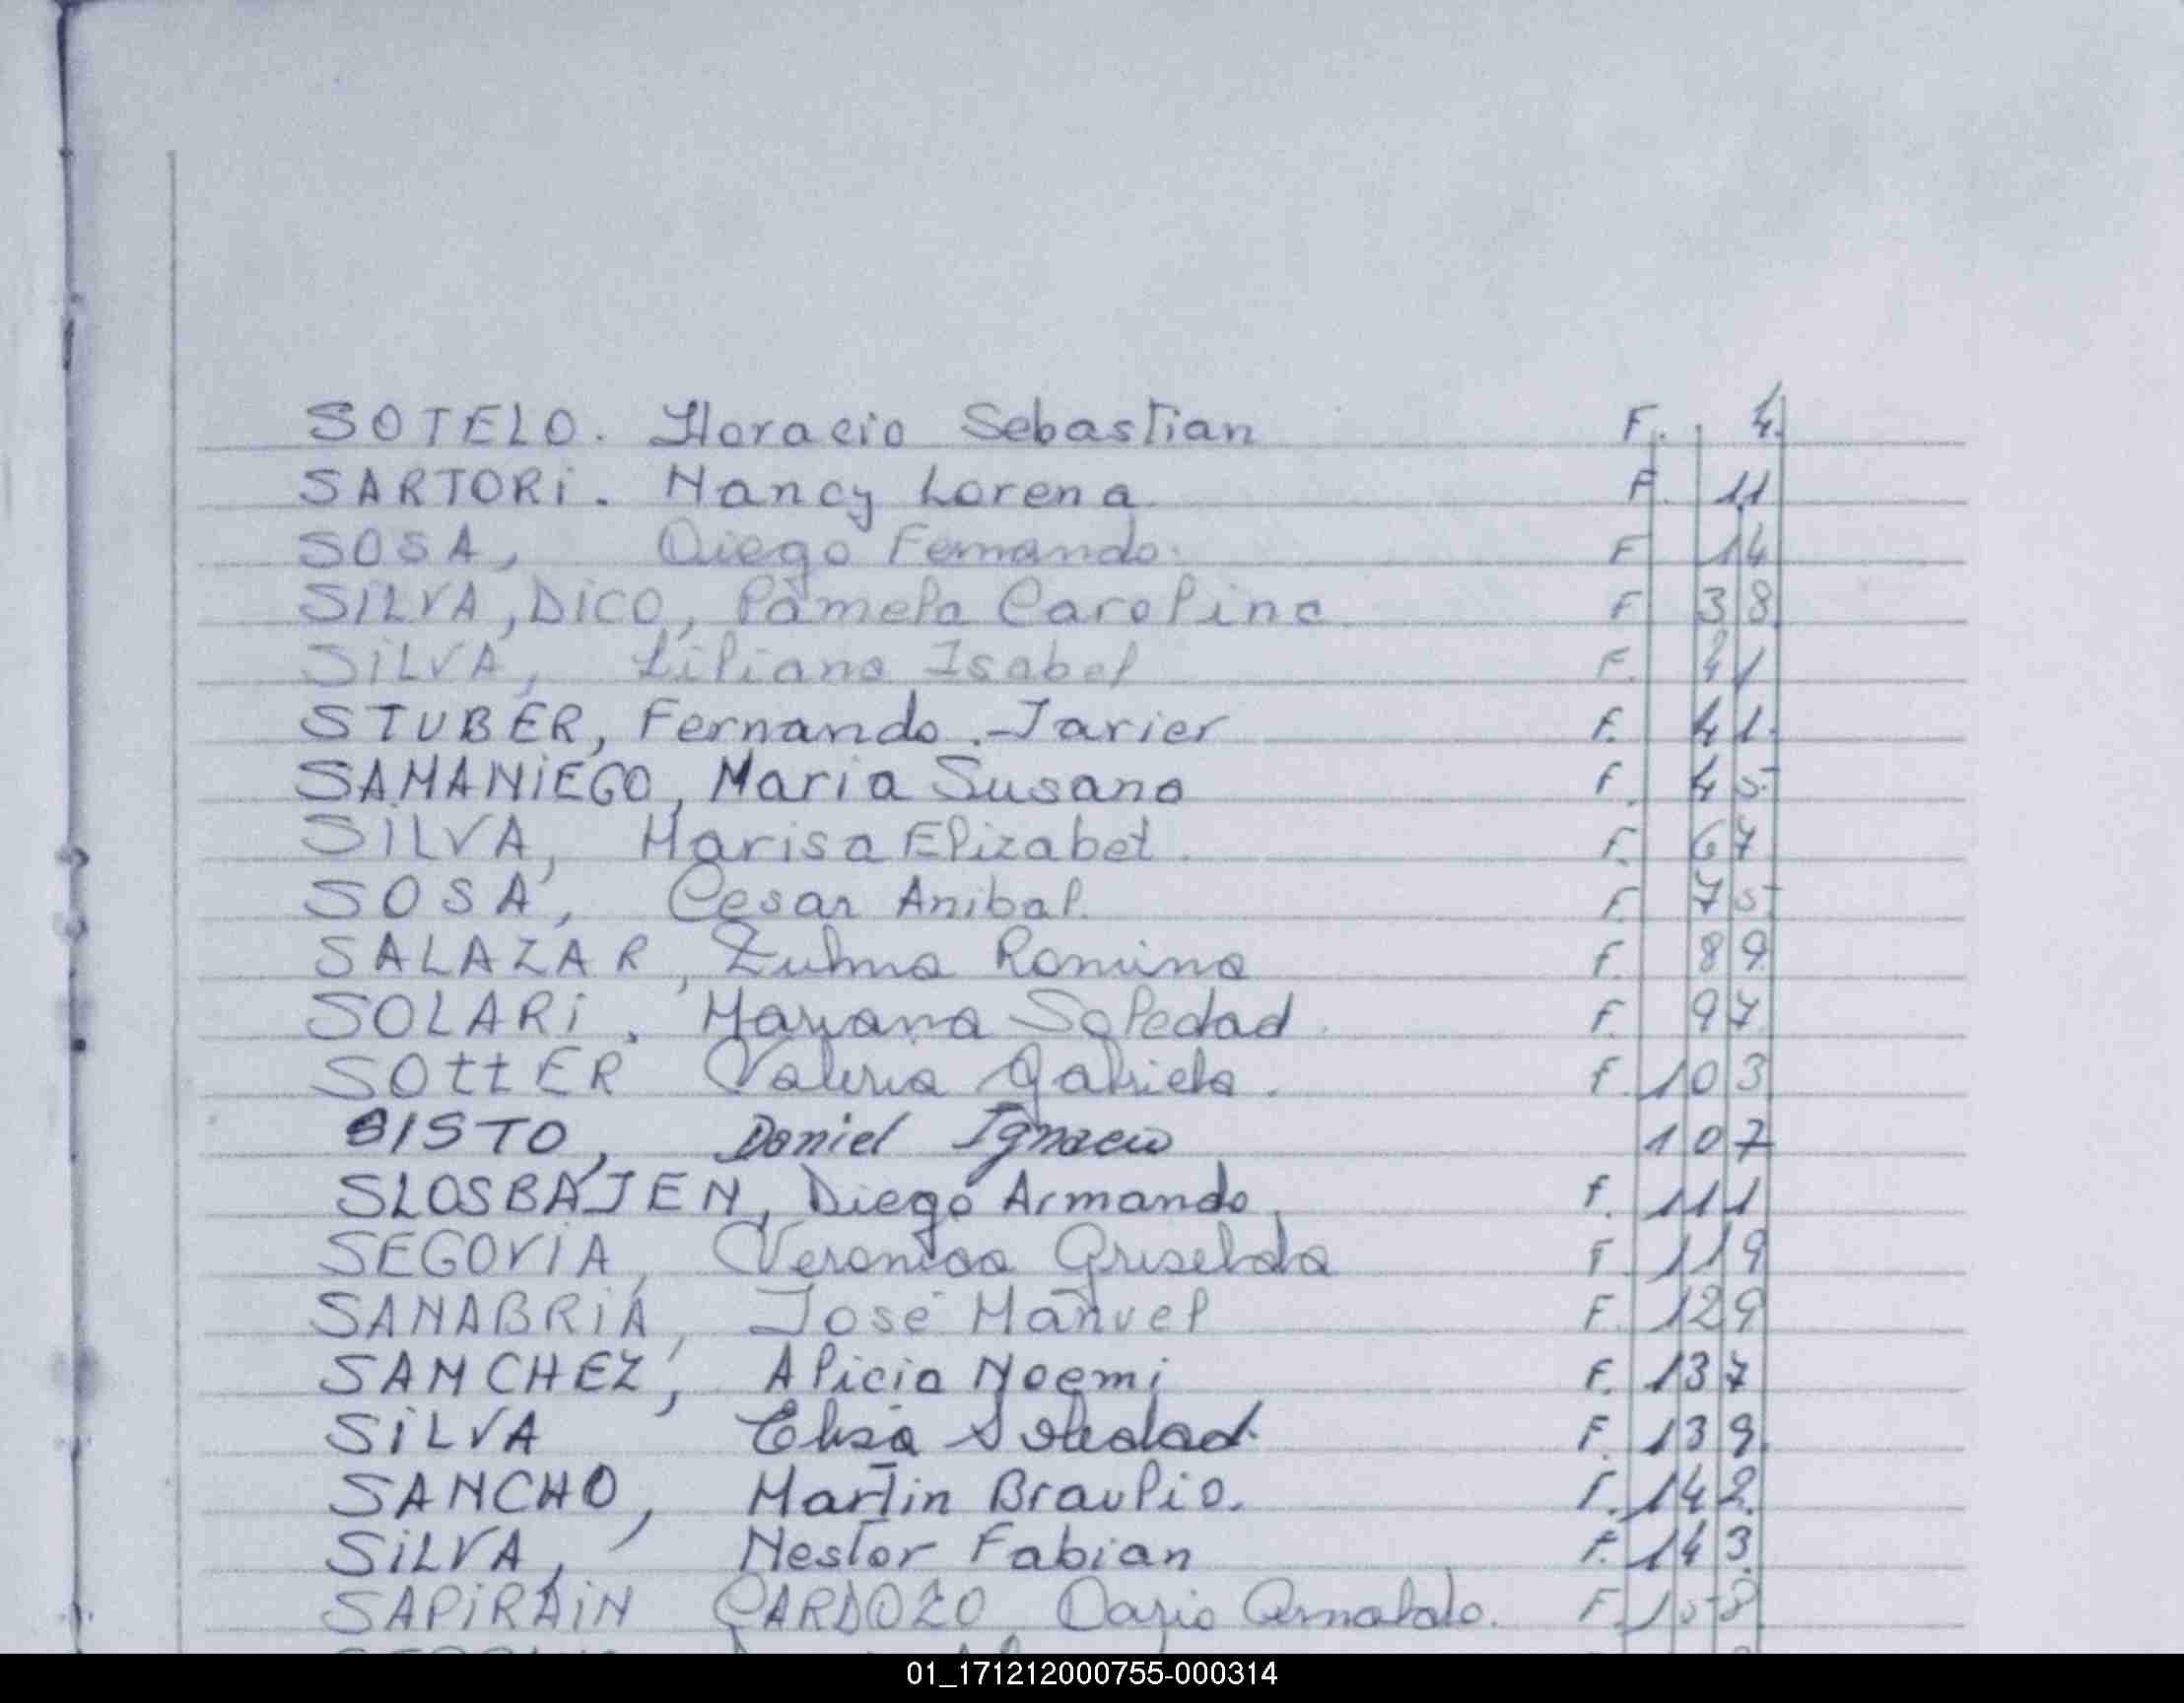 SOTELO. Horacio Sebastian F. 4.
SARTORi. Nancy Lorena F. 11
SOSA, Diego Fernando. F 14
SiLVA, DiCO, Pamela Carolina F 38
SiLVA, Liliana Isabel F. 41
STUBER, Fernando.-Javier F. 41.
SAMANiEGO, Maria Susana F. 45
SiLVA, Marisa Elizabet. F. 67
SOSA, Cesar Anibal. F. 75
SALAZAR, Zulma Romina F. 89
SOLARi, Mariana Soledad F. 97
SOttER Valeria Gabriela. F. 103
SISTO, Daniel Ignacio 107
SLOSBAJEN, Diego Armando F. 111
SEGOVIA, Veronica Griselda F. 119
SANABRiA, José Manuel F. 129
SANCHEZ, Alicia Noemi F. 137
SiLVA Elisa Soledad. F. 139
SANCHO, Martin Braulio. F. 142.
SiLVA, Nestor Fabian F. 143
SAPiRAiN CARDOZO Dario Arnaldo. F. 158
01_171212000755-000314